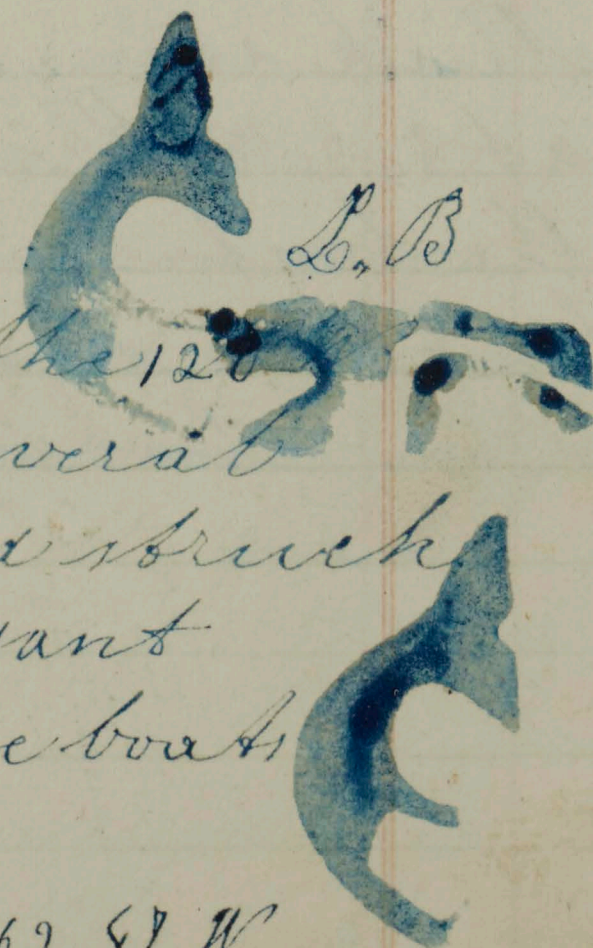 L. B
the 120
veral
d struck
vant
e boats
69 57 W